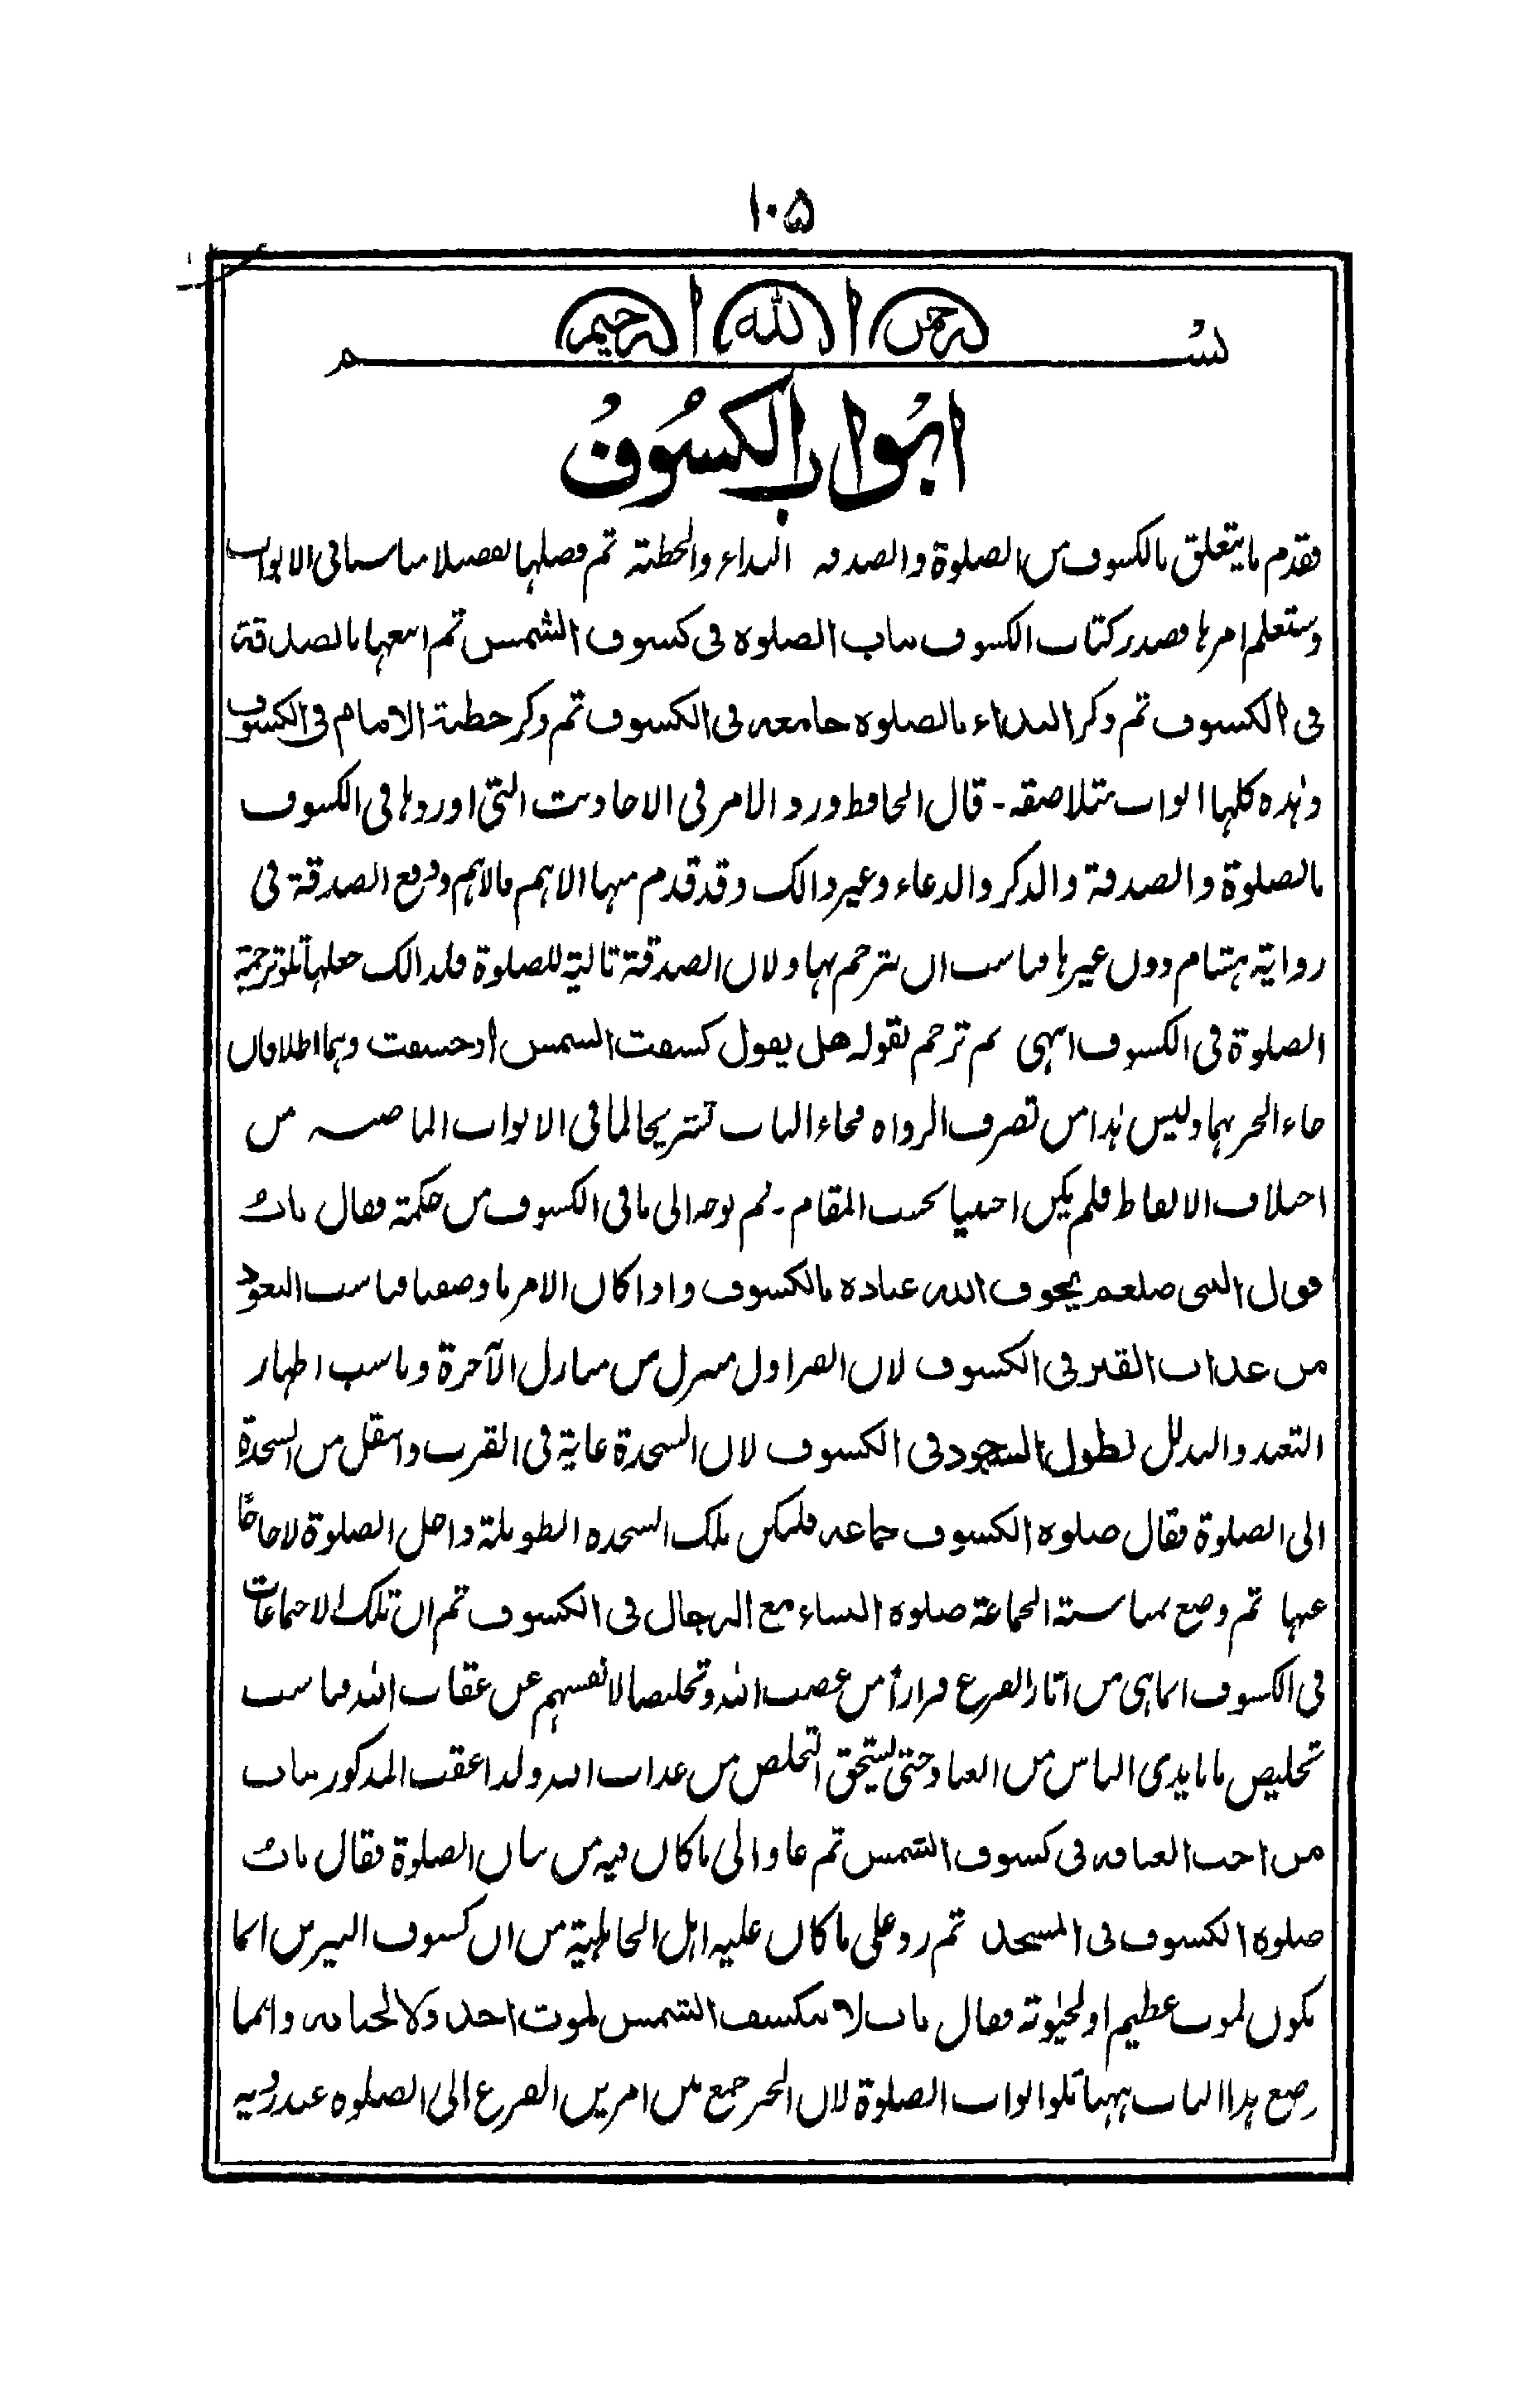 ۱۰۵
بسم الله الرحمن الرحيم
ابواب الكسوف
فقدم ما يتعلق بالكسوف من الصلوة والصدقة النداء والخطبة ثم فصلها تفصيلا مناسبا فى الابواب
وستعلم امرها فصدر كتاب الكسوف بباب الصلوة فى كسوف الشمس ثم اتبعها بالصدقة
فى الكسوف ثم ذكر النداء بالصلوة جامعة فى الكسوف ثم ذكر خطبة الامام فى الكسوف
وهذه كلها ابواب متلاصقة - قال الحافظ ورد الامر فى الاحاديث التى اوردها فى الكسوف
بالصلوة والصدقة والذكر والدعاء وغير ذالك وقد قدم منها الاهم فالاهم ووقع الصدقة فى
رواية هشام دون غيرها فناسب ان يترجم بها ولان الصدقة تالية للصلوة فلذالك جعلها تلو ترجمة
الصلوة فى الكسوف انتهى ثم ترجم لقوله هل يقول كسفت الشمس او خسفت وهما اطلاقان
جاء الخبر بهما وليس هذا من تصرف الرواة فجاء الباب تشريحا لما فى الابواب الماضية من
اختلاف الالفاظ فلم يكن اجنبيا بحسب المقام - ثم توجه الى ما فى الكسوف من حكمة فقال باب
قول النبى صلعم يخوف الله عباده بالكسوف واذا كان الامر ما وصفنا فناسب التعوذ
من عذاب القبر فى الكسوف لان القبر اول منزل من منازل الآخرة وناسب اظهار
التعبد والتذلل بطول السجود فى الكسوف لان السجدة غاية فى القرب وانتقل من السجدة
الى الصلوة فقال صلوة الكسوف جماعة فليكن تلك السجدة الطويلة داخل الصلوة لا خارجًا
عنها ثم وضع بمناسبة الجماعة صلوة النساء مع الرجال فى الكسوف ثم ان تلك الاجتماعات
فى الكسوف انما هى من آثار الفزع فرارا من غضب الله وتخليصا لانفسهم عن عقاب الله فناسب
تخليص ما بايدى الناس من العباد حتى يستحق التخلص من عذاب الله ولذا عقب المذكور بباب
من احب العتاقة فى كسوف الشمس ثم عاد الى ما كان فيه من بيان الصلوة فقال باب
صلوة الكسوف فى المسجد ثم رد على ما كان عليه اهل الجاهلية من ان كسوف النيرين انما
يكون لموت عظيم او لحيوته فقال باب لا تنكسف الشمس لموت احد ولا لحياته وانما
وضع هذا الباب ههنا تلو ابواب الصلوة لان الخبر جمع بين امرين الفزع الى الصلوة عند رؤية